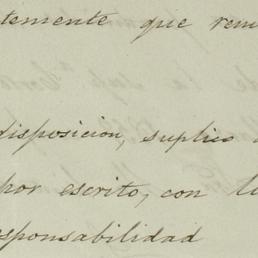 temente que rem
disposicion, suplico
por escrito, con l
sponsabilidad